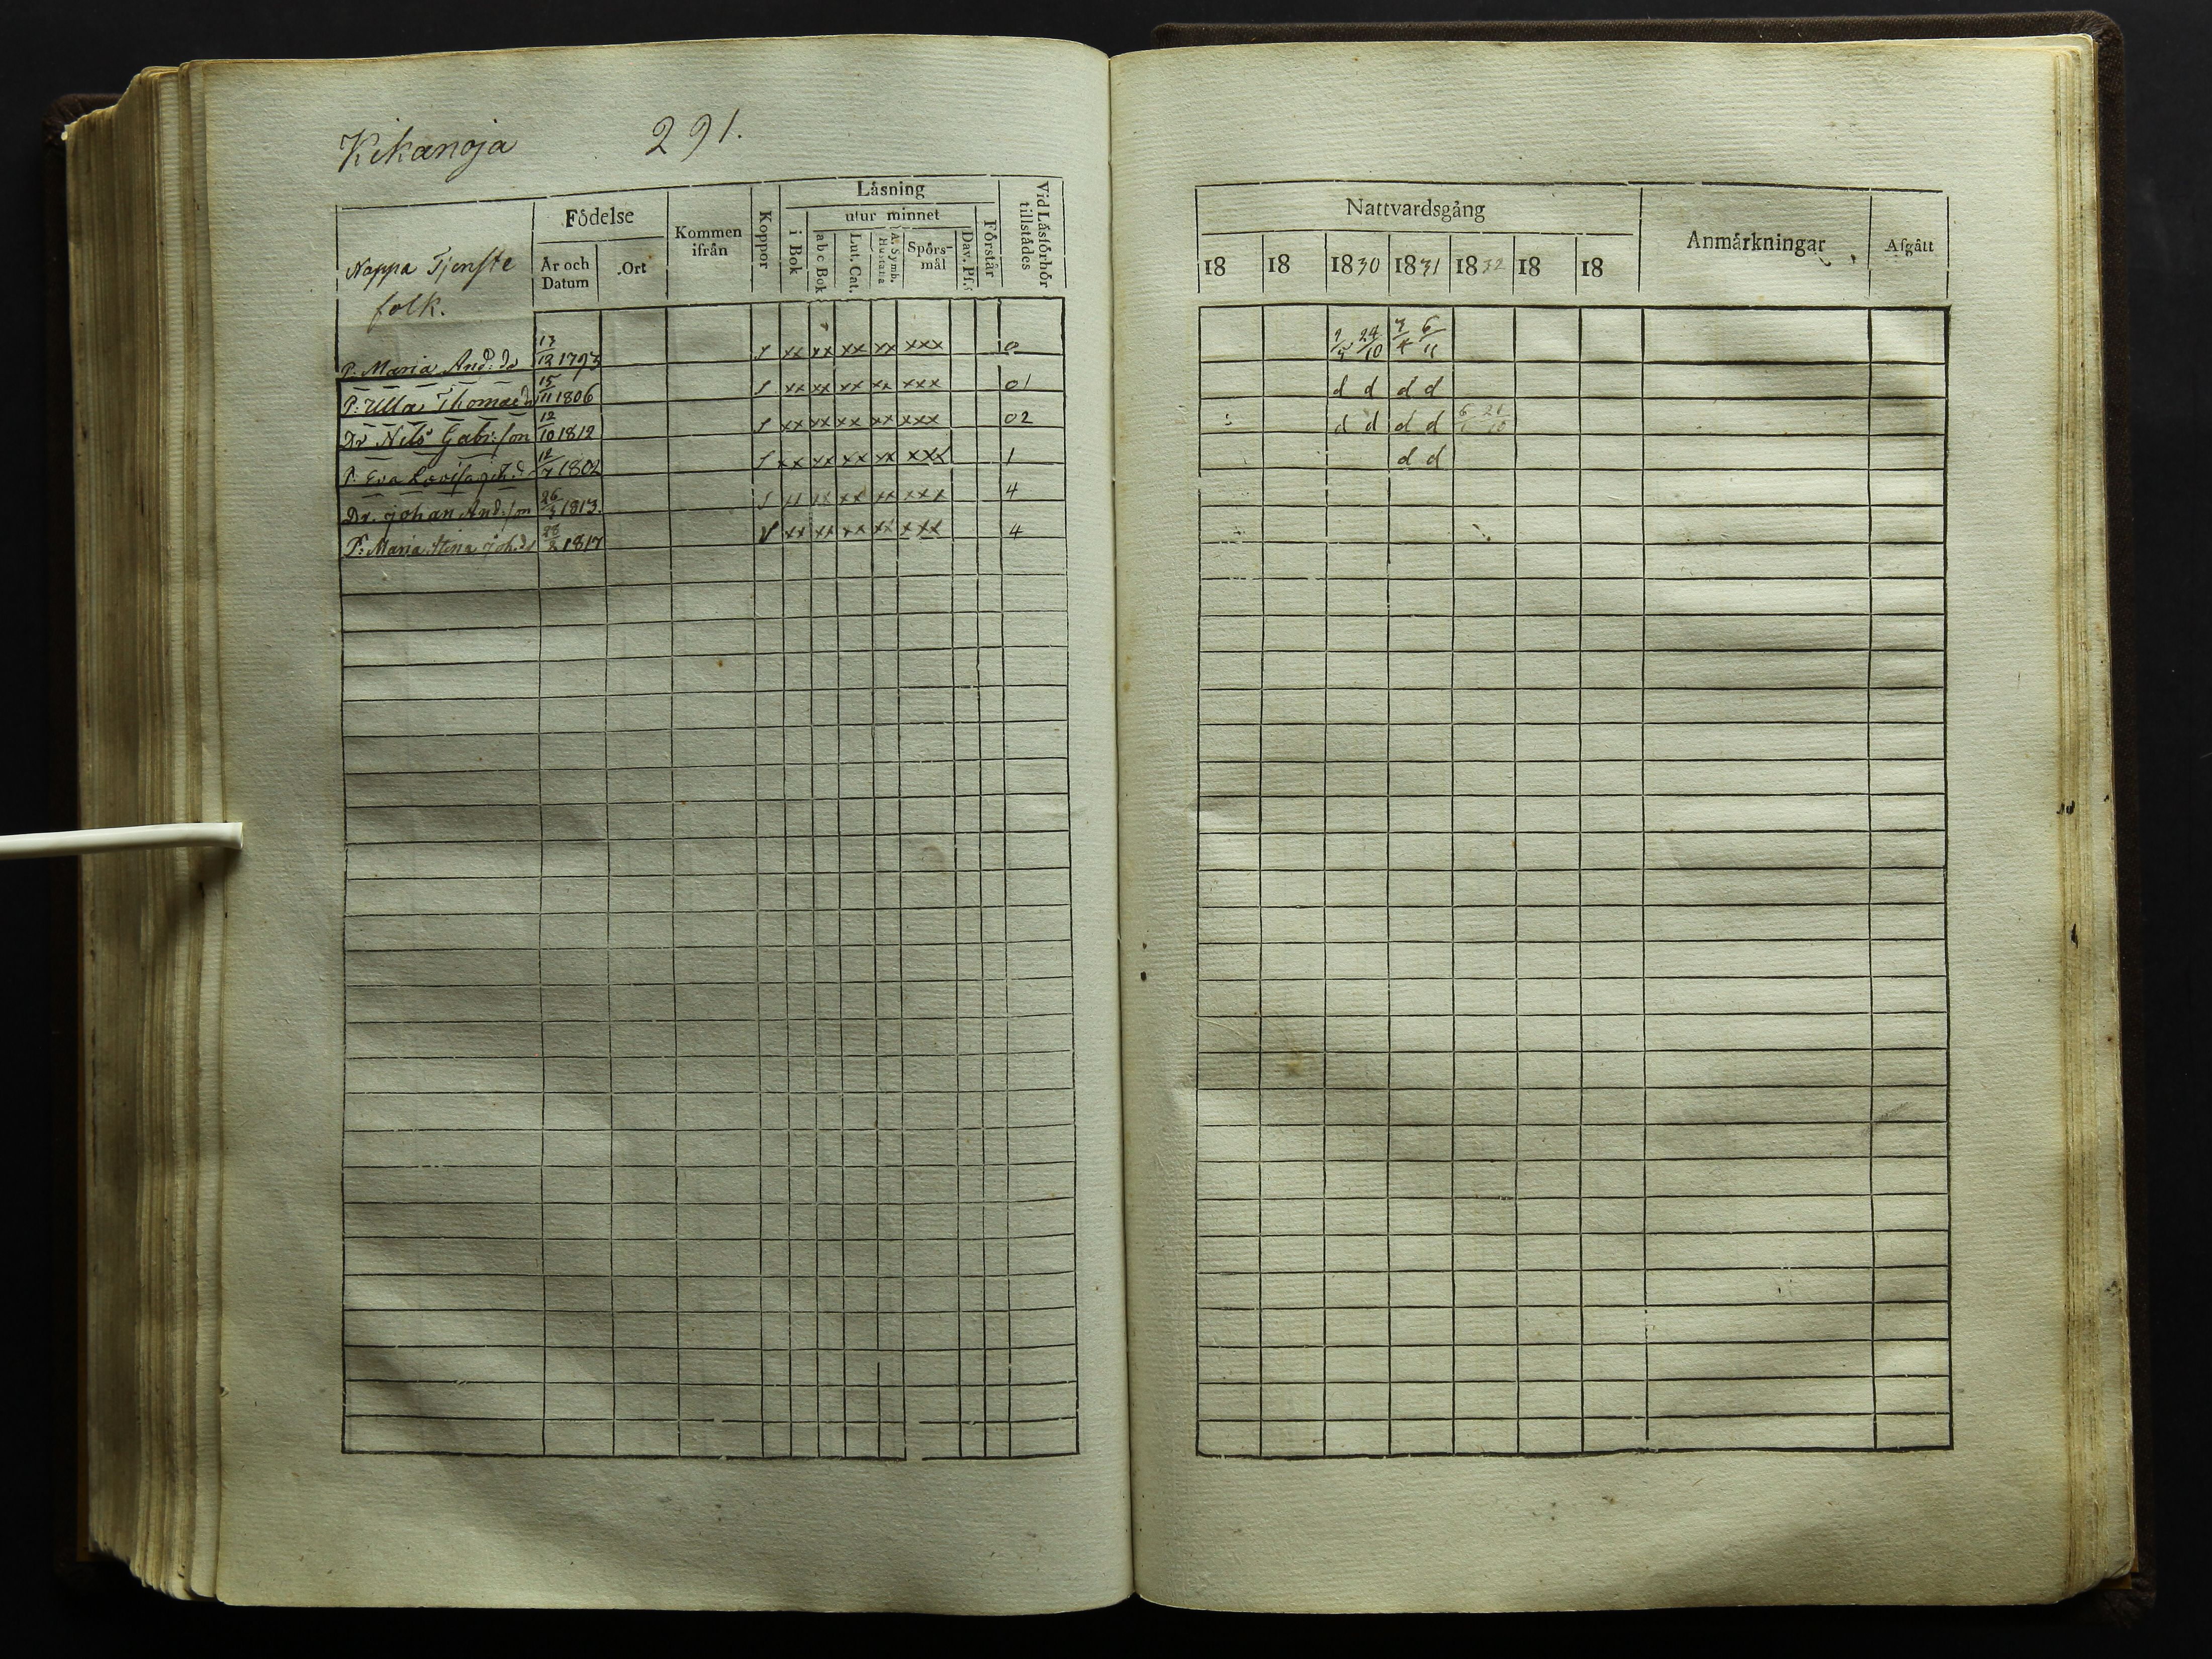 Kikanoja 291.
Läsning
Födelse
Kommen ifrån
Koppor
i Bok
utur minnet
Förstår
Vid Läsförhör tillstädes
a b c Bok
Lut. Cat.
A. Symb. Hustafla
Spörsmål
Dav. Ps.
År och Datum
Ort
Nappa Tjenste
folk.
P: Maria And: dr 17/12 1793 S xx xx xx xx xxx 0
P: Ulla Thomæ d 15/11 1806 S xx xx xx xx xxx 01
Dr Nils Gabr:son 12/10 1812 S xx xx xx xx xxx 02
P. Eva Lovisa Joh. d 12/7 1802 S xx xx xx xx xxx 1
Dr. Johan And:son 26/3 1813 S xx xx xx xx xxx 4
P: Maria Stina Joh:dr 28/8 1817 V xx xx xx xx xxx 4
Nattvardsgång
Anmärkningar
Afgått
18 18 1830 1831 1832 18 18
24/10 6/11
d d d d
d d d d
d d